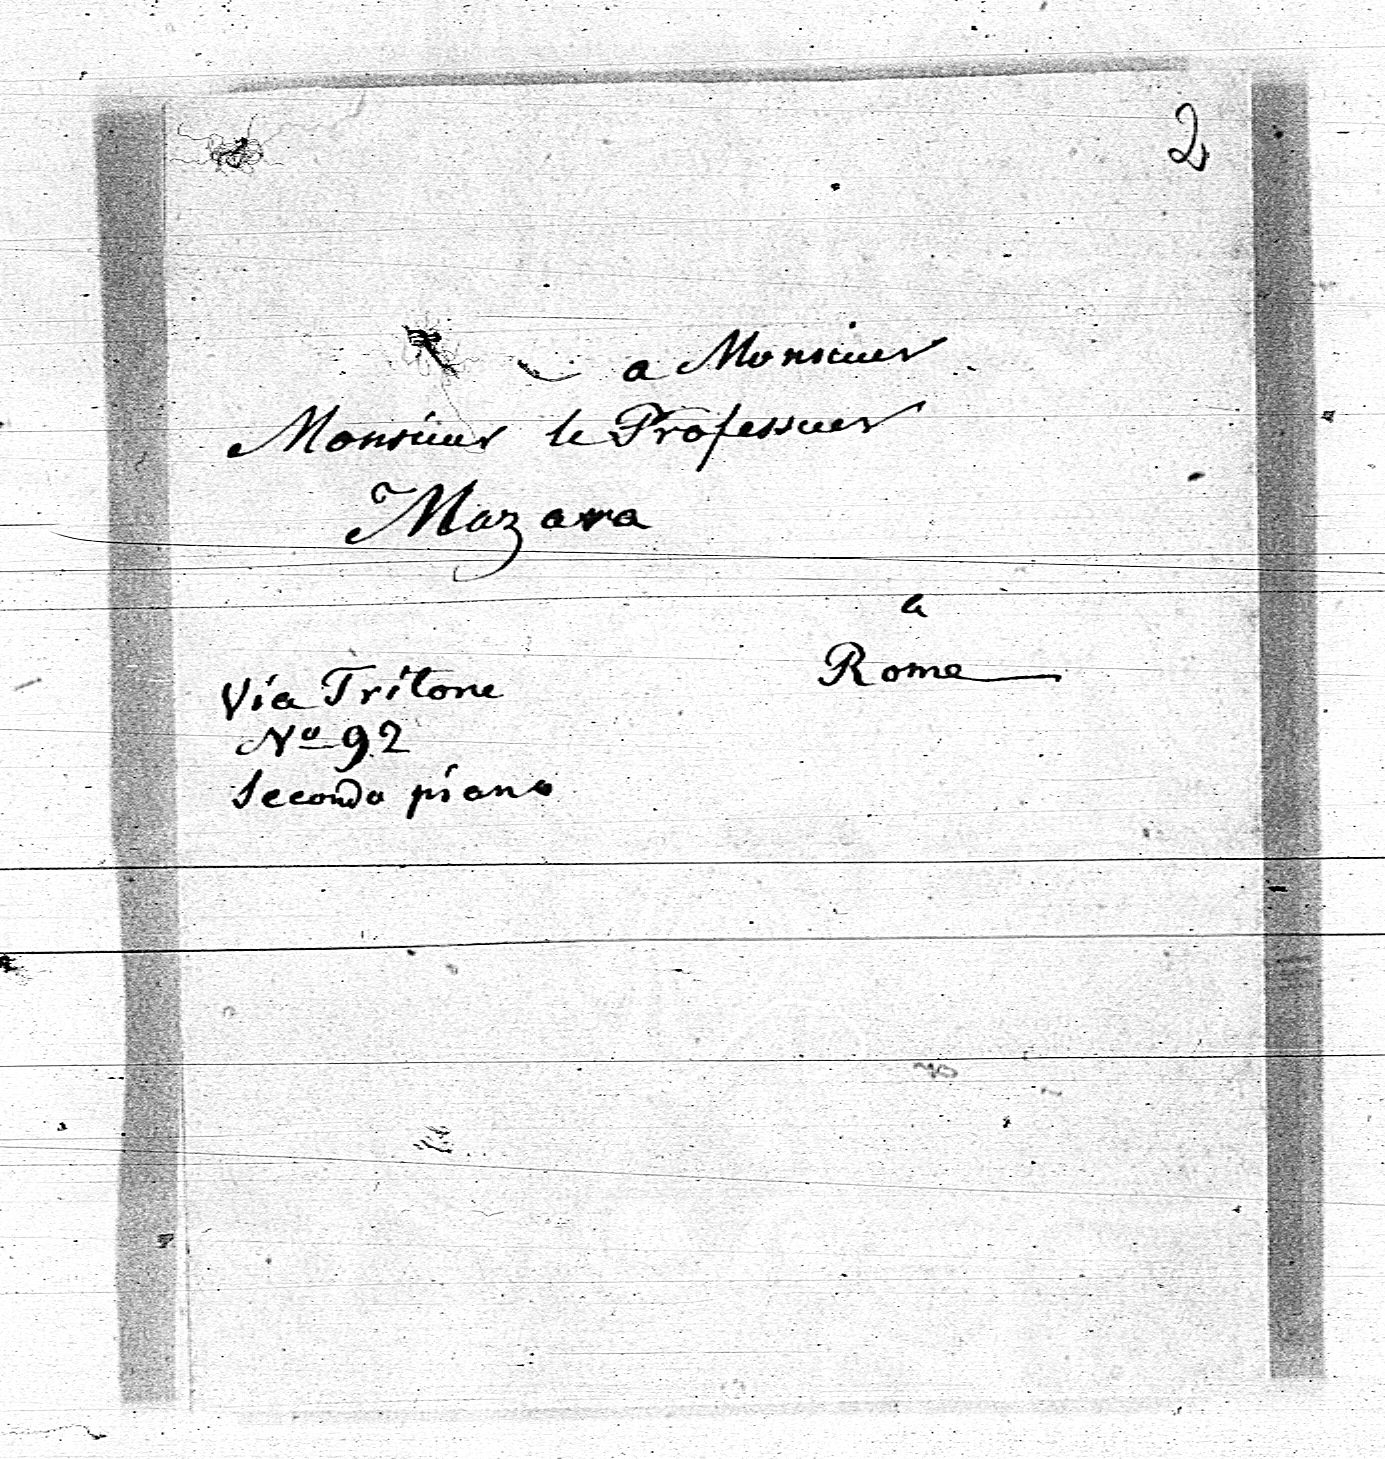 2
a Monsieur
Monsieur le Professuer
Mazara
a
Rome
Via Tritone
Nº 92
Secondo piano